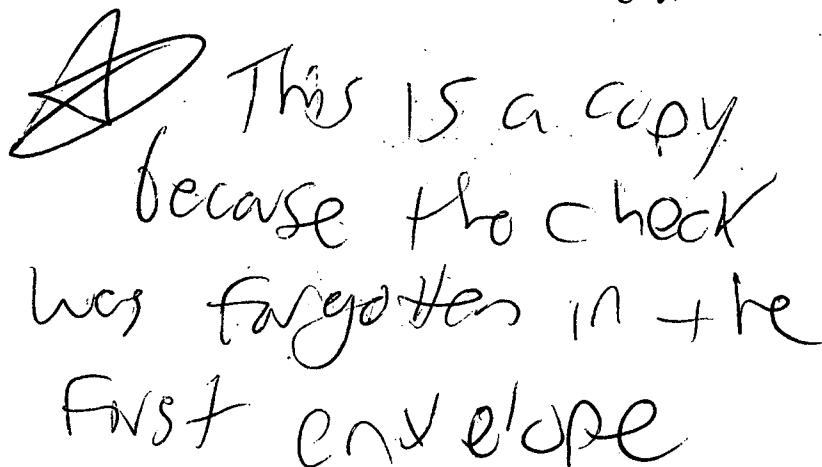 This is a copy
because the check
was forgotten in the
First envelope